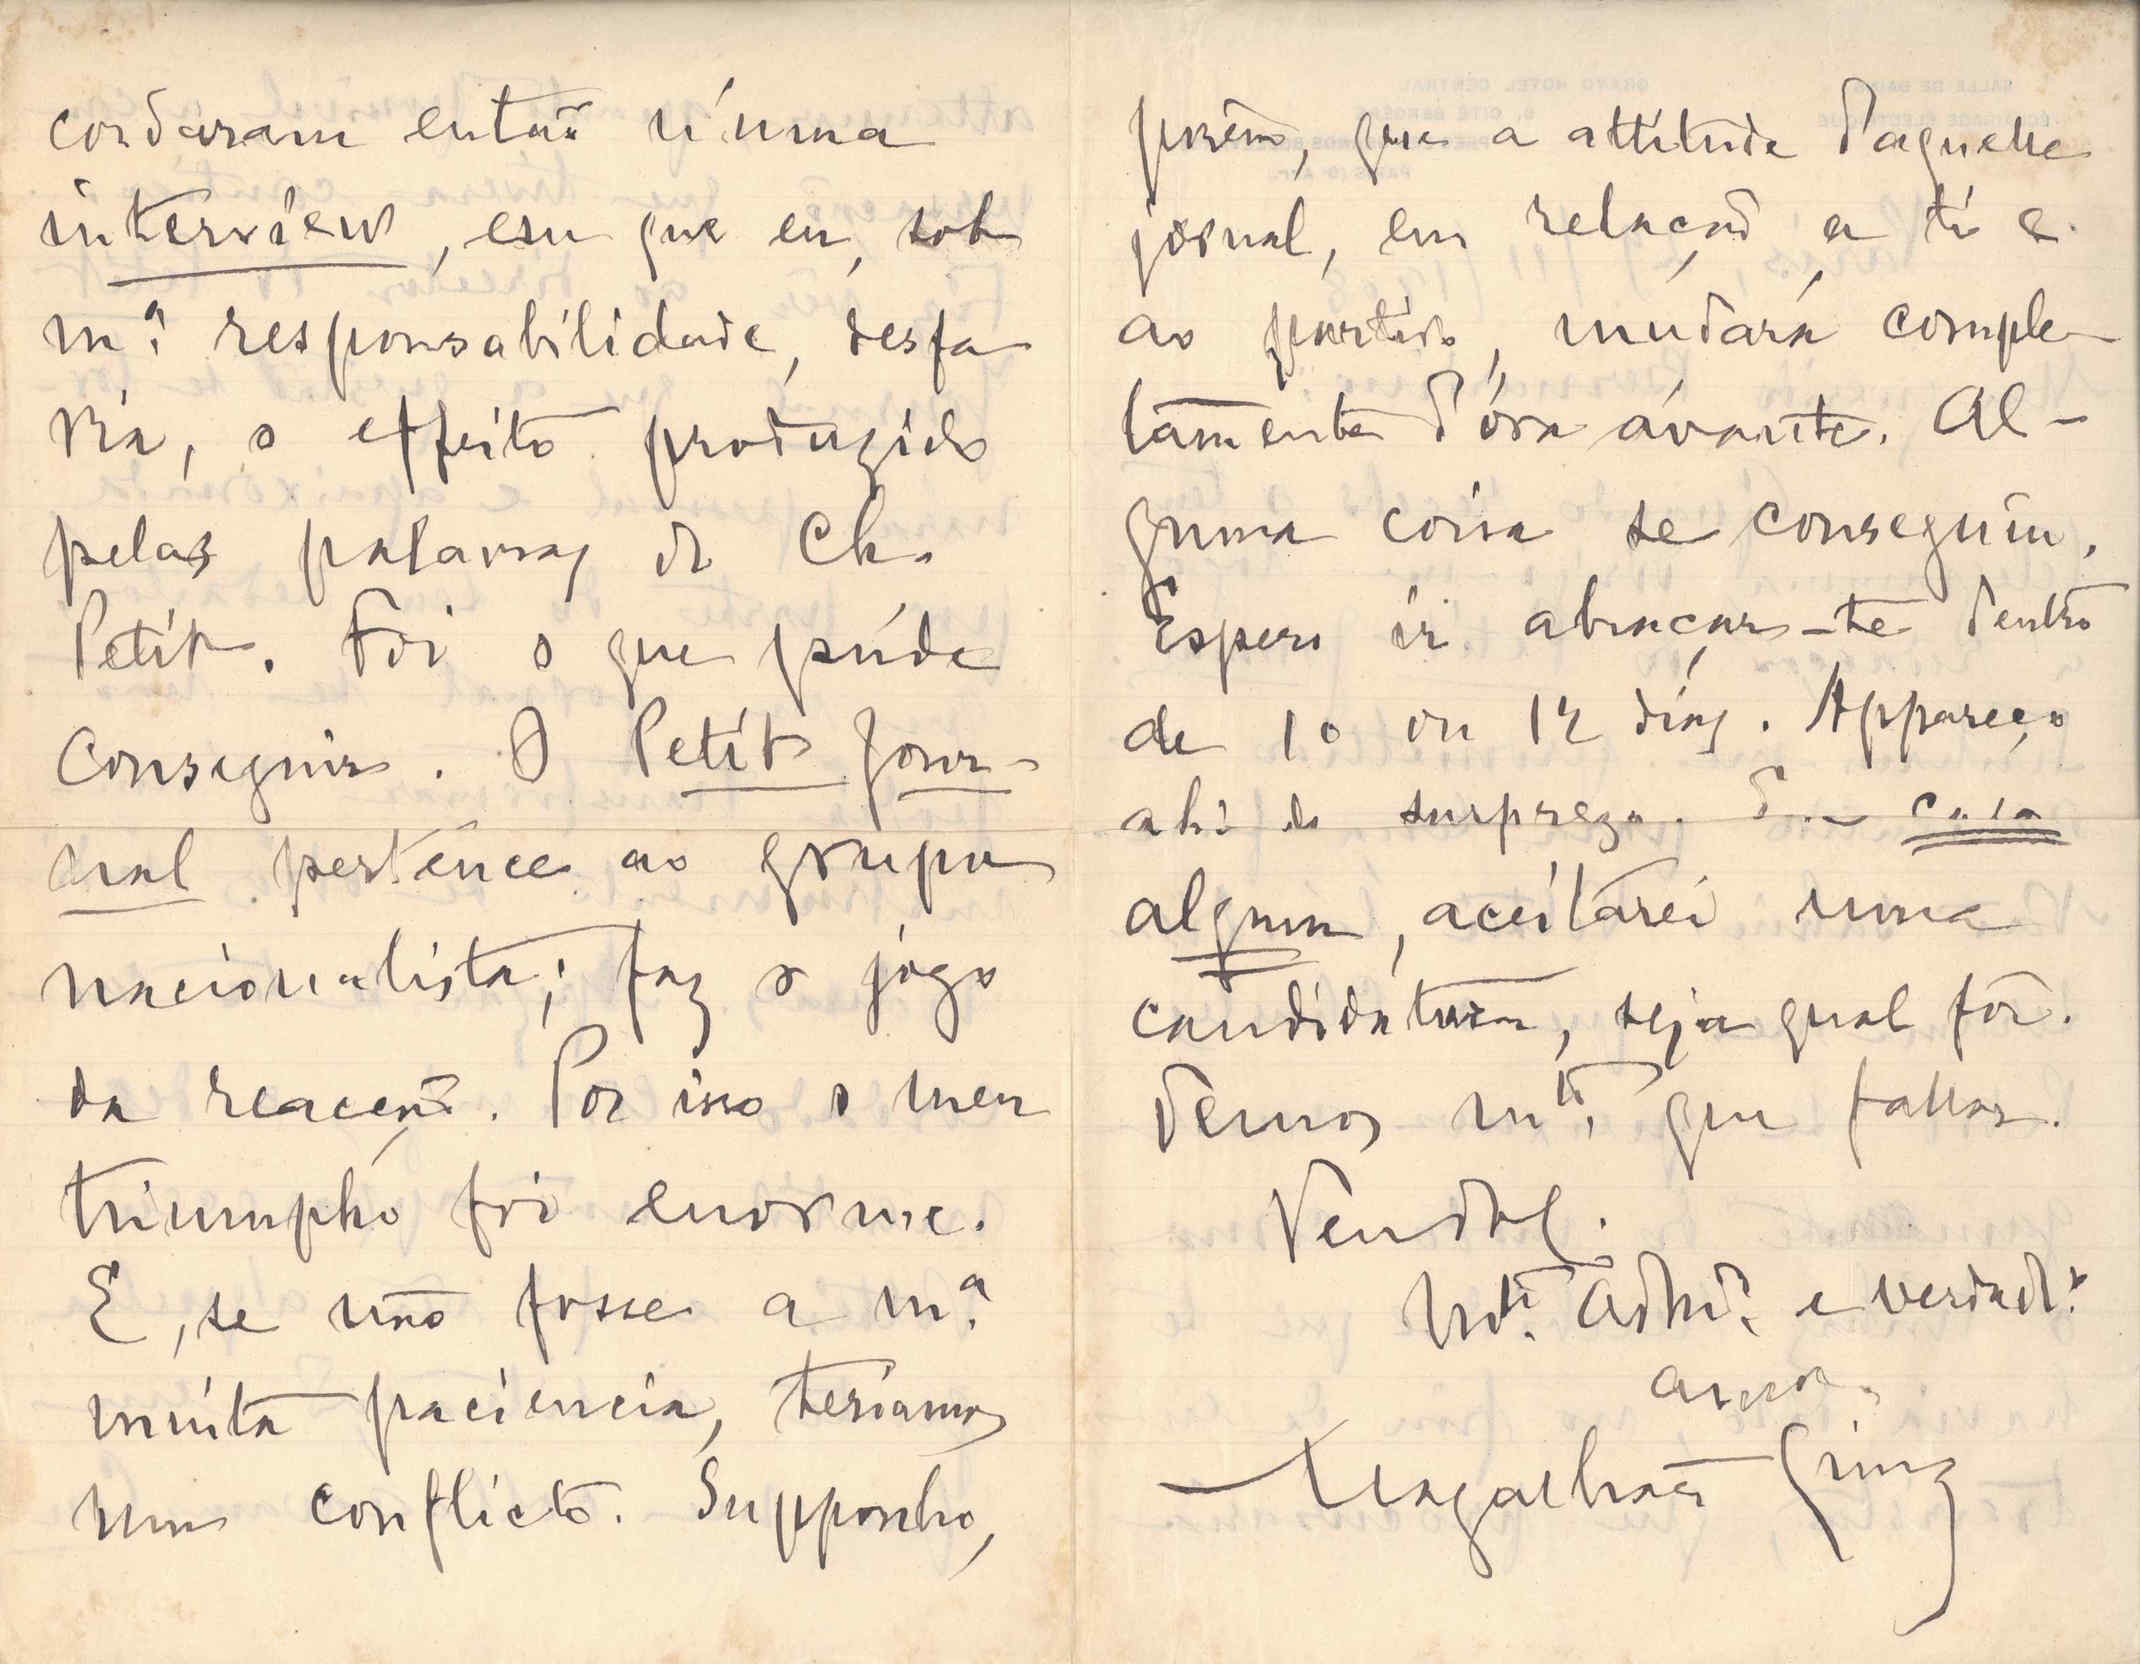 cordaram então n'uma
interview, em que eu, sob
m.ª responsabilidade, desfa
ria, o effeito produzido
pelas palavras de Ch.
Petit. Foi o que púde
conseguir. O Petit Jour-
nal pertence ao grupo
nacionalista; faz o jogo
da reacção. Por isso o meu
triumpho foi enorme.
E, se não fosse a m.ª
muita paciencia, teriamos
um conflicto. Supponho,
porém, que a attitude d'aquelle
jornal, em relação a ti e
ao partido, mudará comple-
tamente d'óra ávante. Al-
guma coisa se conseguiu.
Espero ir abraçar-te dentro
de 10 ou 12 dias. Appareço
ahi de surpreza. caso
algum, aceitarei uma
candidatura, seja qual fôr.
Temos m.to que fallar.
Vendol.
M.to Adm.or e verdad.º
am.º
Magalhães Lima
GRAND HOTEL CENTRAL
CITÉ BERGÈRE
PARIS
SALLE DE BAINS